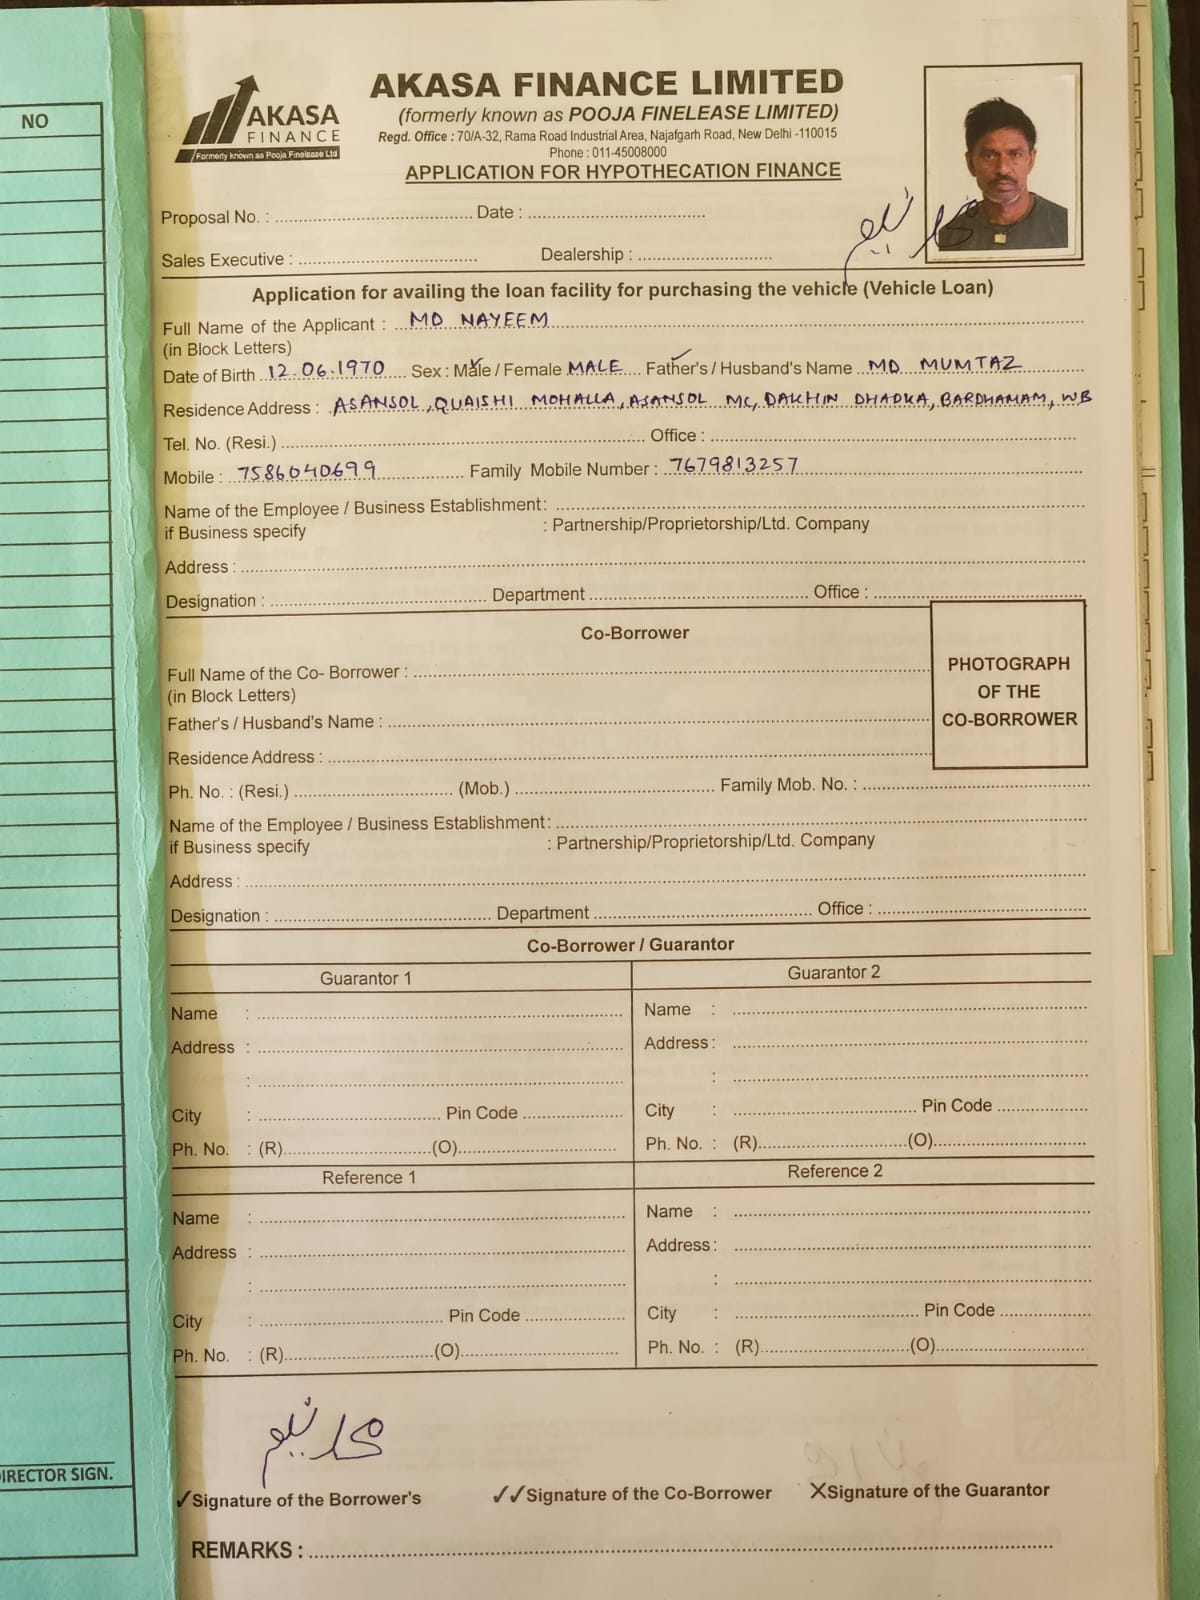 NO
DIRECTOR SIGN.
AKASA
FINANCE
Formerly known as Pooja Finelease Ltd
AKASA FINANCE LIMITED
(formerly known as POOJA FINELEASE LIMITED)
Regd. Office : 70/A-32, Rama Road Industrial Area, Najafgarh Road, New Delhi -110015
Phone : 011-45008000
APPLICATION FOR HYPOTHECATION FINANCE
Proposal No. : Date :
Sales Executive : Dealership :
Application for availing the loan facility for purchasing the vehicle (Vehicle Loan)
Full Name of the Applicant : MD NAYEEM
(in Block Letters)
Date of Birth 12.06.1970 Sex : Male / Female MALE Father's / Husband's Name MD MUMTAZ
Residence Address : ASANSOL, QUAISHI MOHALLA, ASANSOL MC, DAKHIN DHADKA, BARDHAMAM, WB
Tel. No. (Resi.) Office :
Mobile : 7586040699 Family Mobile Number : 7679813257
Name of the Employee / Business Establishment:
if Business specify : Partnership/Proprietorship/Ltd. Company
Address :
Designation : Department Office :
Co-Borrower
PHOTOGRAPH
OF THE
CO-BORROWER
Full Name of the Co- Borrower :
(in Block Letters)
Father's / Husband's Name :
Residence Address :
Ph. No. : (Resi.) (Mob.) Family Mob. No. :
Name of the Employee / Business Establishment:
if Business specify : Partnership/Proprietorship/Ltd. Company
Address :
Designation : Department Office :
Co-Borrower / Guarantor
Guarantor 1 Guarantor 2
Name : Name :
Address : Address :
: :
City : Pin Code City : Pin Code
Ph. No. : (R) (O) Ph. No. : (R) (O)
Reference 1 Reference 2
Name : Name :
Address : Address :
: :
City : Pin Code City : Pin Code
Ph. No. : (R) (O) Ph. No. : (R) (O)
✓Signature of the Borrower's ✓✓Signature of the Co-Borrower XSignature of the Guarantor
REMARKS :